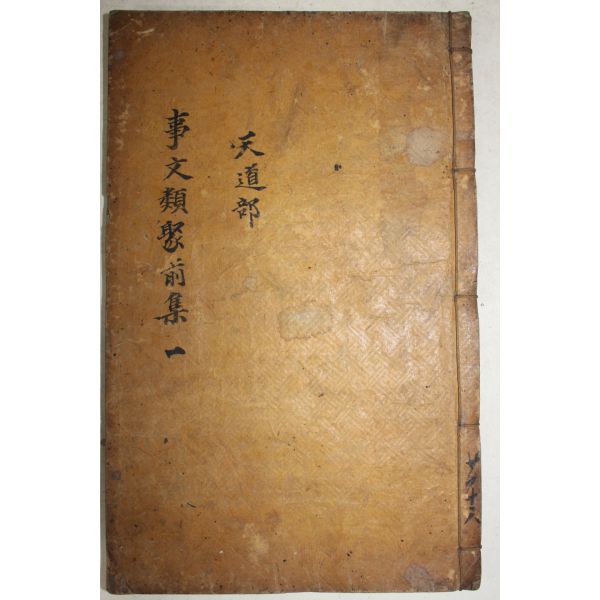 天道部
事文類聚前集 一